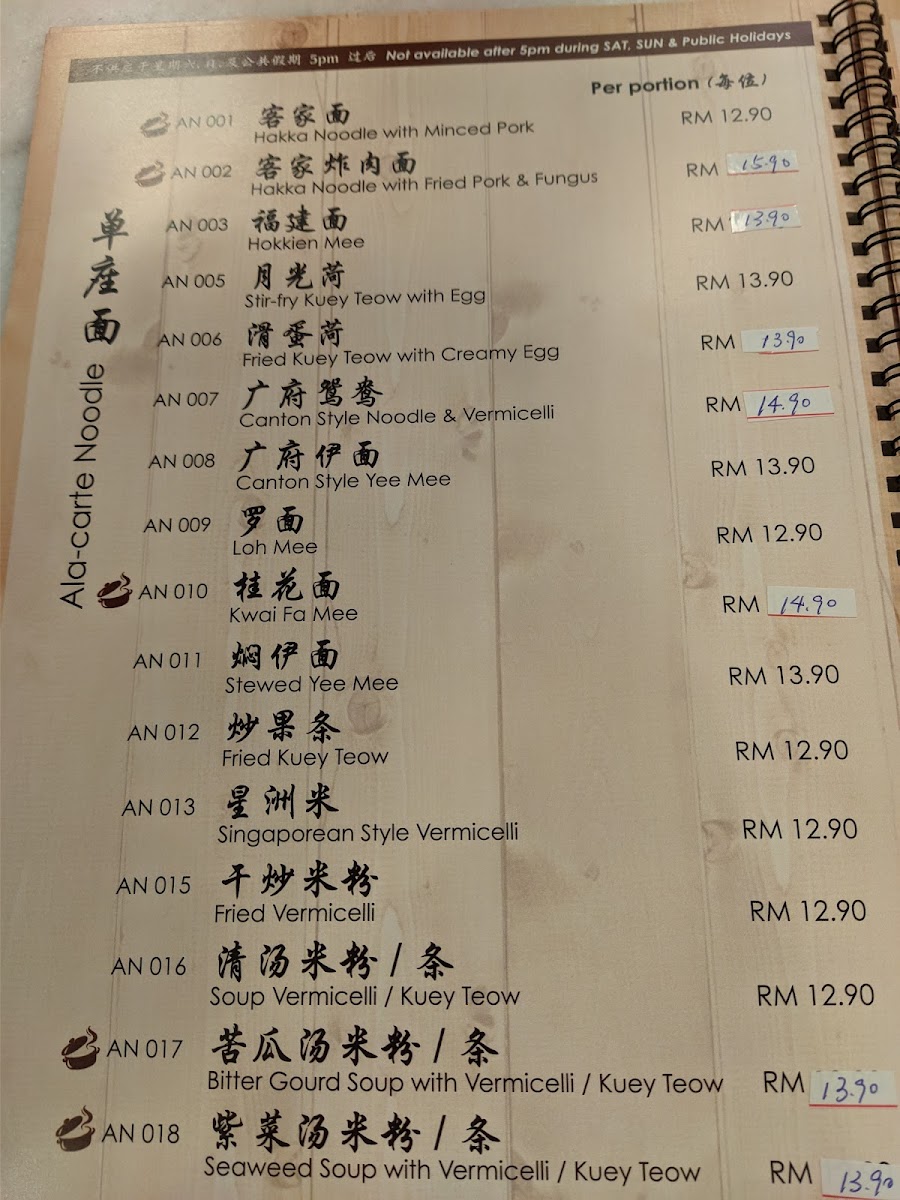 不供应于星期六,日,及公共假期 5pm 过后 Not available after 5pm during SAT, SUN & Public Holidays
Per portion (每位)
单座面
Ala-carte Noodle
AN 001 客家面 RM 12.90
Hakka Noodle with Minced Pork
AN 002 客家炸肉面 RM 15.90
Hakka Noodle with Fried Pork & Fungus
AN 003 福建面 RM 13.90
Hokkien Mee
AN 005 月光荷 RM 13.90
Stir-fry Kuey Teow with Egg
AN 006 滑蛋荷 RM 13.90
Fried Kuey Teow with Creamy Egg
AN 007 广府鸳鸯 RM 14.90
Canton Style Noodle & Vermicelli
AN 008 广府伊面 RM 13.90
Canton Style Yee Mee
AN 009 罗面 RM 12.90
Loh Mee
AN 010 桂花面 RM 14.90
Kwai Fa Mee
AN 011 焖伊面 RM 13.90
Stewed Yee Mee
AN 012 炒果条 RM 12.90
Fried Kuey Teow
AN 013 星洲米 RM 12.90
Singaporean Style Vermicelli
AN 015 干炒米粉 RM 12.90
Fried Vermicelli
AN 016 清汤米粉 / 条 RM 12.90
Soup Vermicelli / Kuey Teow
AN 017 苦瓜汤米粉 / 条 RM 13.90
Bitter Gourd Soup with Vermicelli / Kuey Teow
AN 018 紫菜汤米粉 / 条 RM 13.90
Seaweed Soup with Vermicelli / Kuey Teow